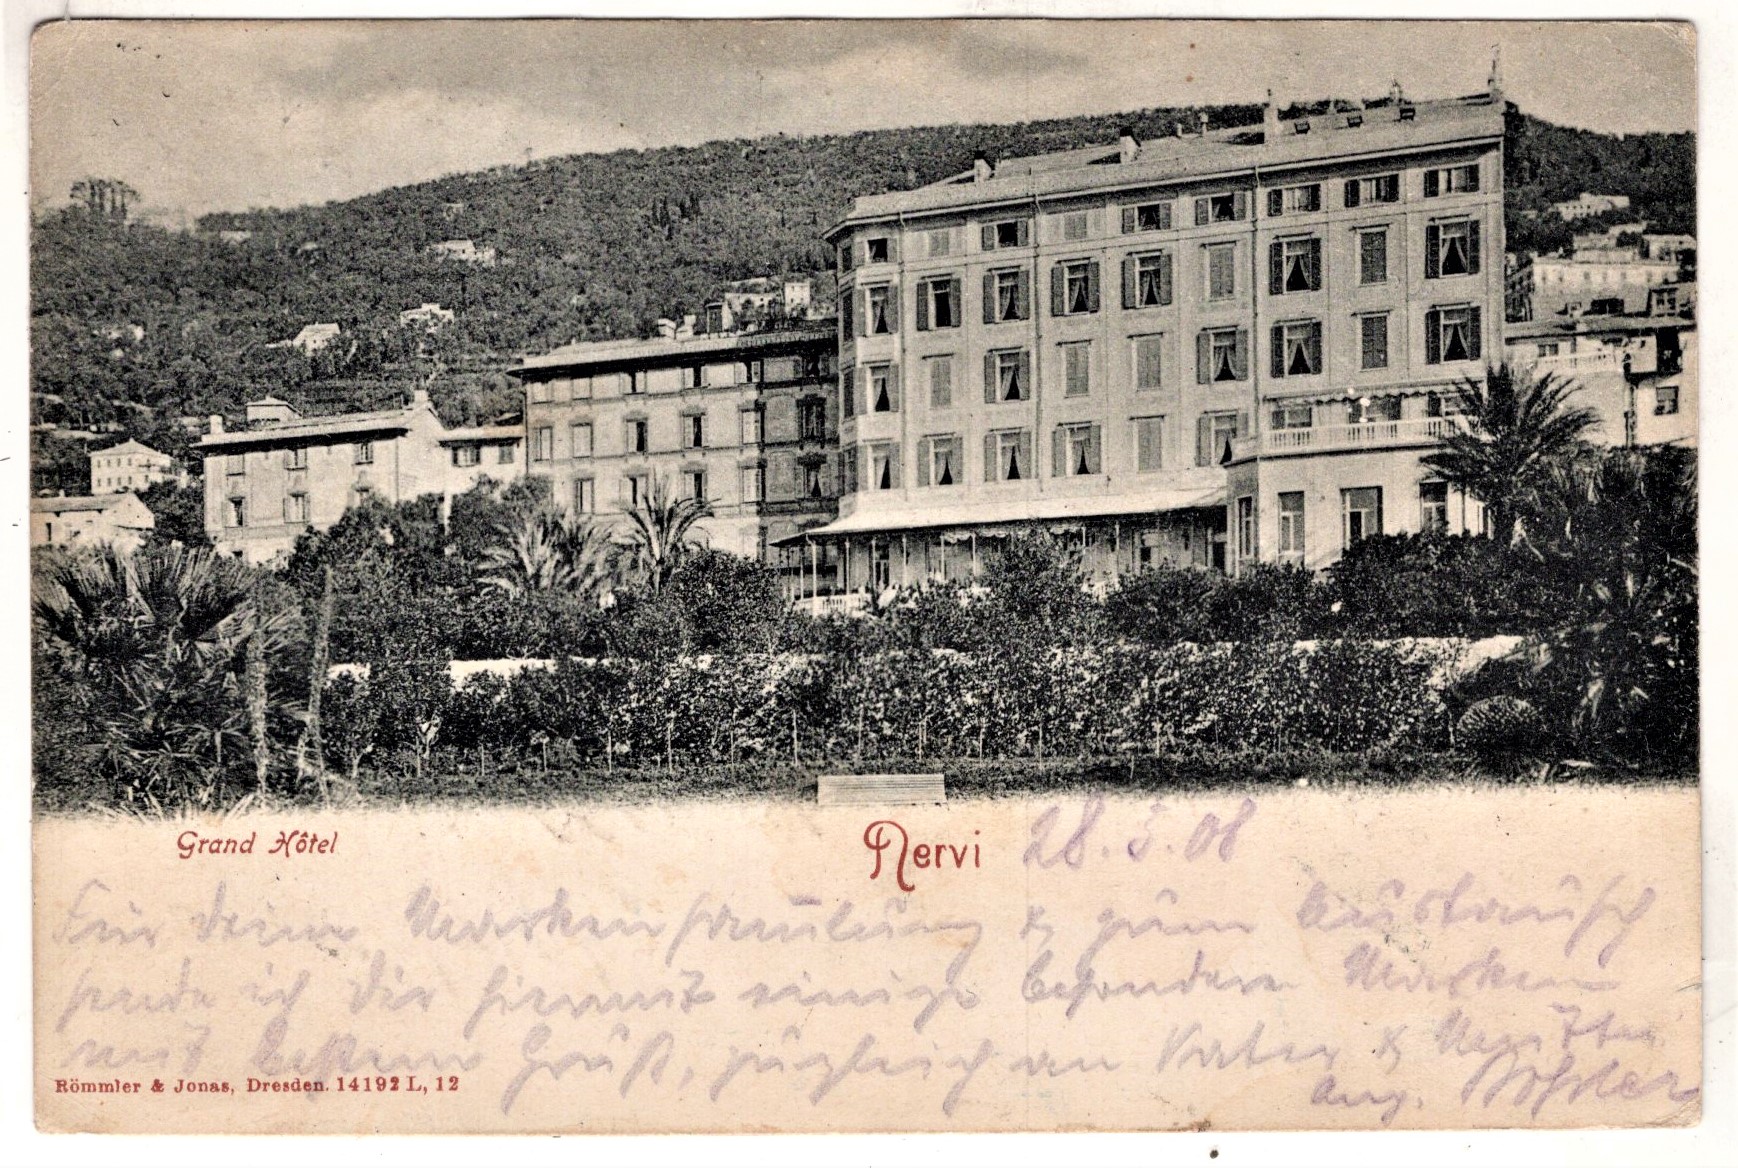 Grand Hôtel
Nervi 28.5.08
Für deine Markensammlung & zum Austausch
sende ich dir hiermit einige besondere Marken
mit bestem Gruß, zugleich an Vater & Mutter
Aug.
Römmler & Jonas, Dresden. 14192 L, 12